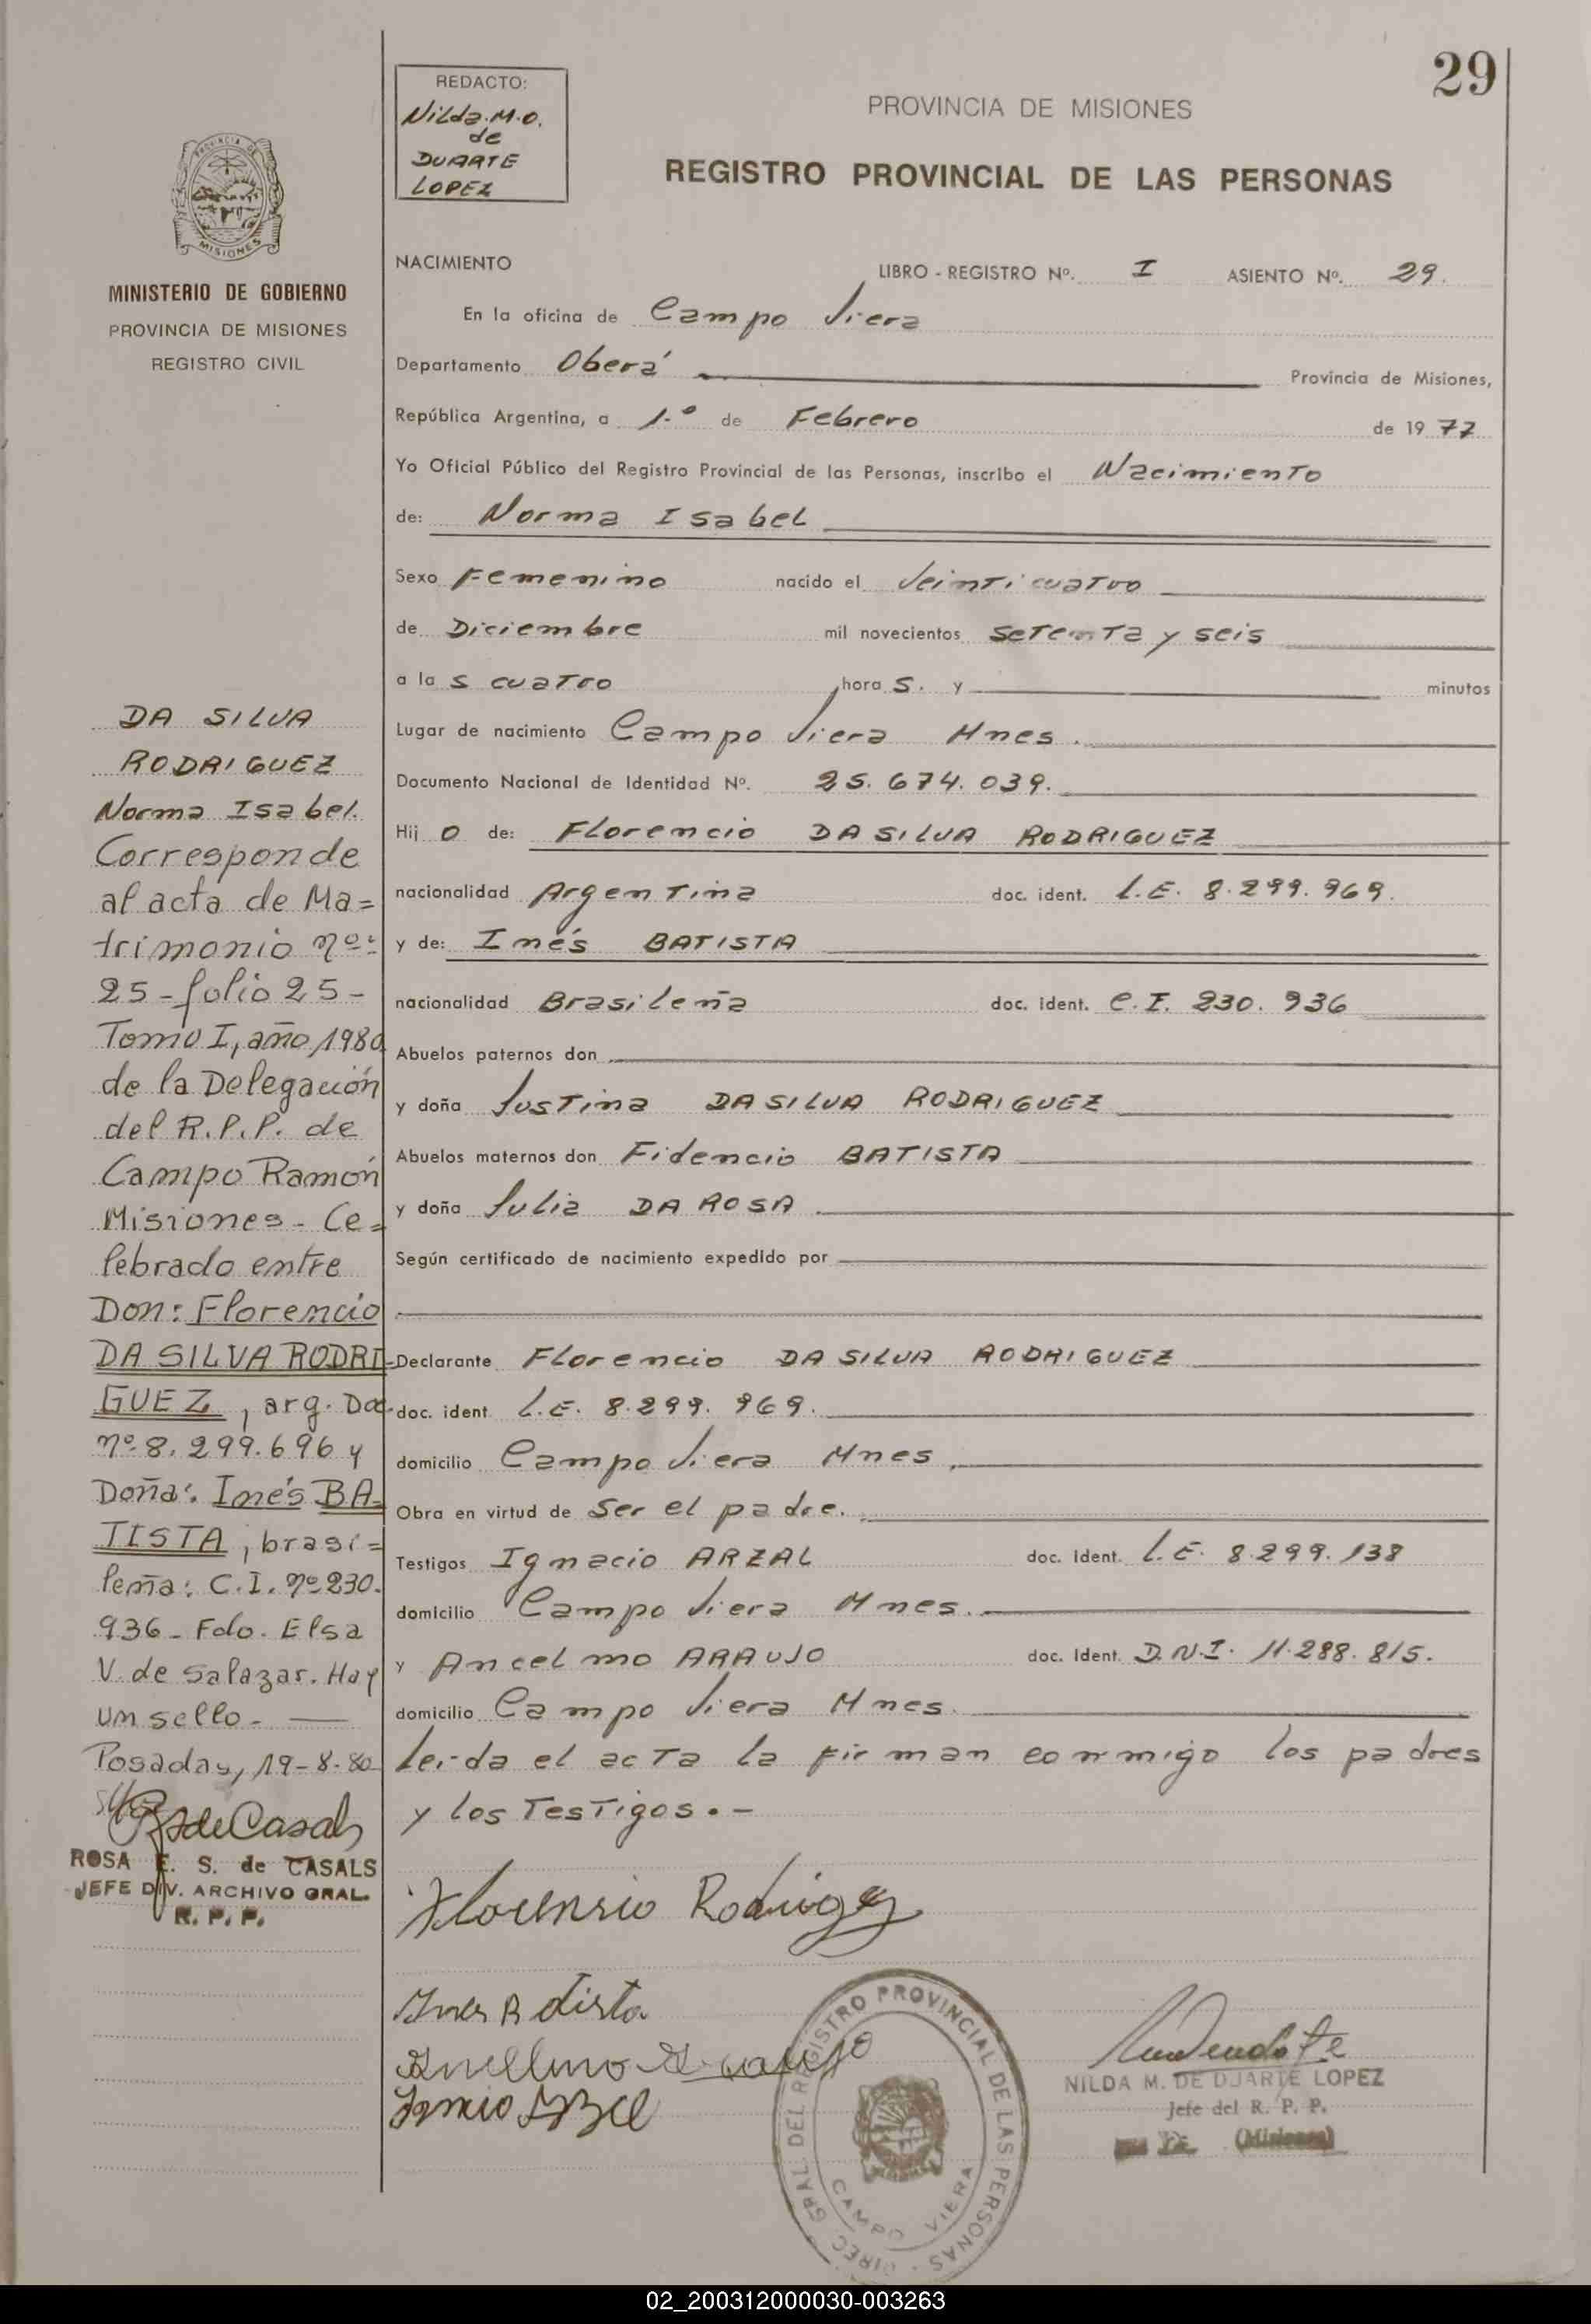 29
REDACTO:
Nilda.M.O.
de
DUARTE
LOPEZ
PROVINCIA DE MISIONES
REGISTRO PROVINCIAL DE LAS PERSONAS
PROVINCIA DE
MISIONES
MINISTERIO DE GOBIERNO
PROVINCIA DE MISIONES
REGISTRO CIVIL
DA SILVA
RODRIGUEZ
Norma Isabel.
Corresponde
al acta de Ma=
trimonio nº:
25-folio 25-
Tomo I, año 1980
de la Delegación
del R.P.P. de
Campo Ramón
Misiones - Ce=
lebrado entre
Don: Florencio
DA SILVA RODRI-
GUEZ, arg. Doc.
nº 8.299.696 y
Doña: Inés BA-
TISTA, brasi=
leña: C.I. nº 230.
936 - Fdo. Elsa
V. de Salazar. Hay
un sello. —
Posadas, 19-8-80
RSdeCasals
ROSA E. S. de CASALS
JEFE DIV. ARCHIVO GRAL.
R. P. P.
NACIMIENTO LIBRO - REGISTRO Nº. I ASIENTO Nº. 29.
En la oficina de Campo Viera
Departamento Oberá Provincia de Misiones,
República Argentina, a 1.º de Febrero de 1977
Yo Oficial Público del Registro Provincial de las Personas, inscribo el Nacimiento
de: Norma Isabel
Sexo Femenino nacido el Veinticuatro
de Diciembre mil novecientos setenta y seis
a las cuatro horas. y minutos
Lugar de nacimiento Campo Viera Mnes.
Documento Nacional de Identidad Nº. 25.674.039.
Hijo de: Florencio DA SILVA RODRIGUEZ
nacionalidad Argentina doc. ident. L.E. 8.299.969.
y de: Inés BATISTA
nacionalidad Brasileña doc. ident. C.I. 230.936
Abuelos paternos don
y doña Justina DA SILVA RODRIGUEZ
Abuelos maternos don Fidencio BATISTA
y doña Julia DA ROSA
Según certificado de nacimiento expedido por
Declarante Florencio DA SILVA RODRIGUEZ
doc. ident L.E. 8.299.969.
domicilio Campo Viera Mnes.
Obra en virtud de Ser el padre.
Testigos Ignacio ARZAL doc. Ident. L.E. 8.299.138
domicilio Campo Viera Mnes.
y Ancelmo ARAUJO doc. Ident. D.N.I. 11.288.815.
domicilio Campo Viera Mnes.
Leida el acta la firman conmigo los padres
y los Testigos.-
Florensio Rodrigez
Ines Batista
DIREC. GRAL. DEL REGISTRO PROVINCIAL DE LAS PERSONAS
CAMPO VIERA
NILDA M. DE DUARTE LOPEZ
Jefe del R. P. P.
(Misiones)
02_200312000030-003263